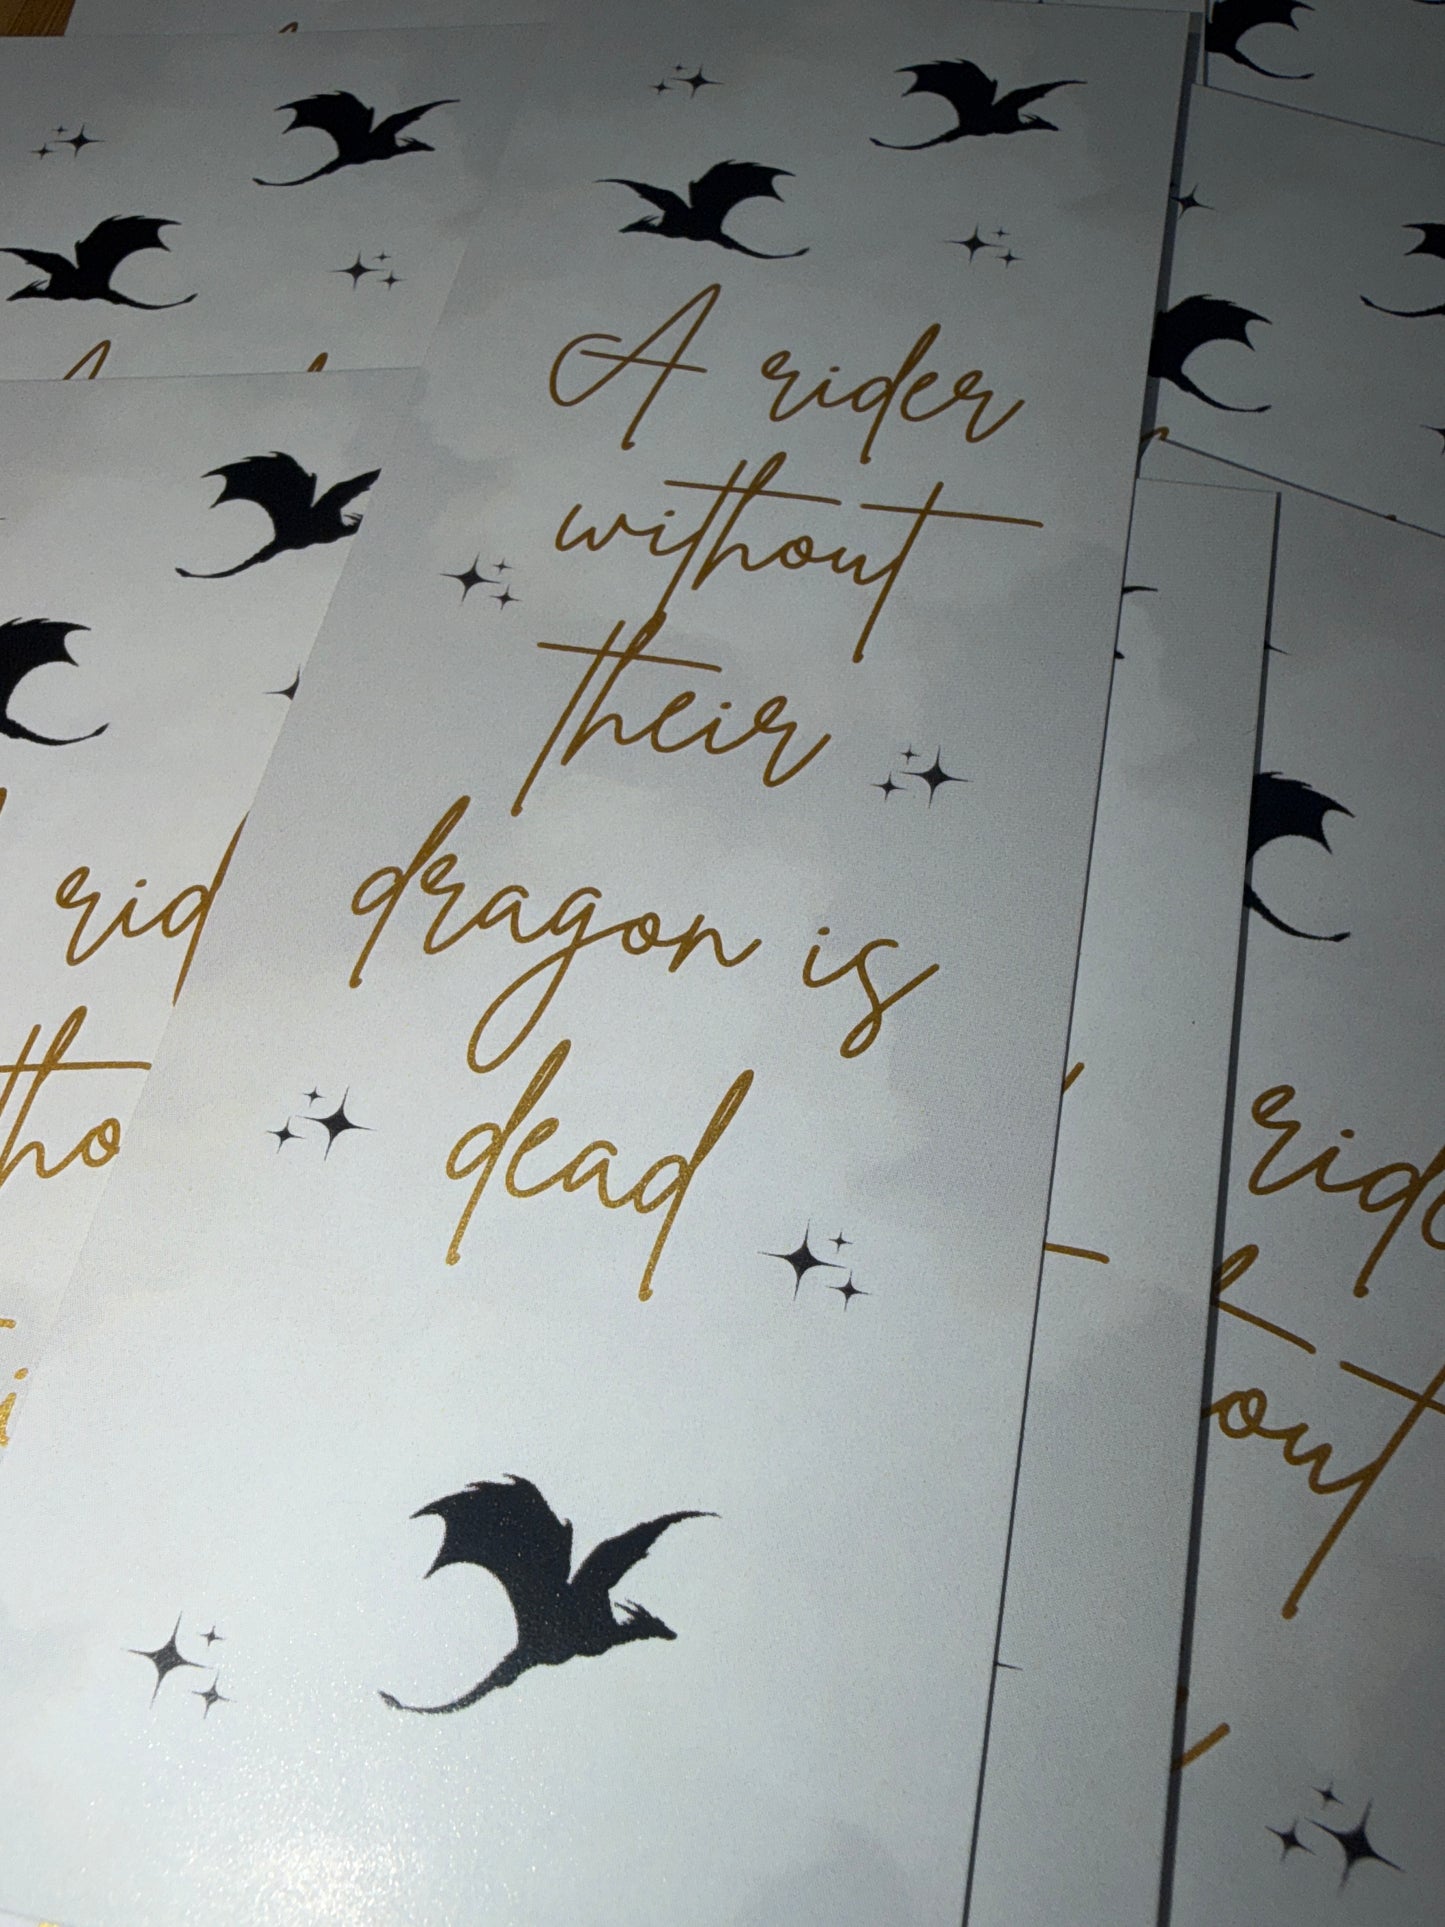 A rider
without
their
dragon is
dead
rid
tho
ride
out